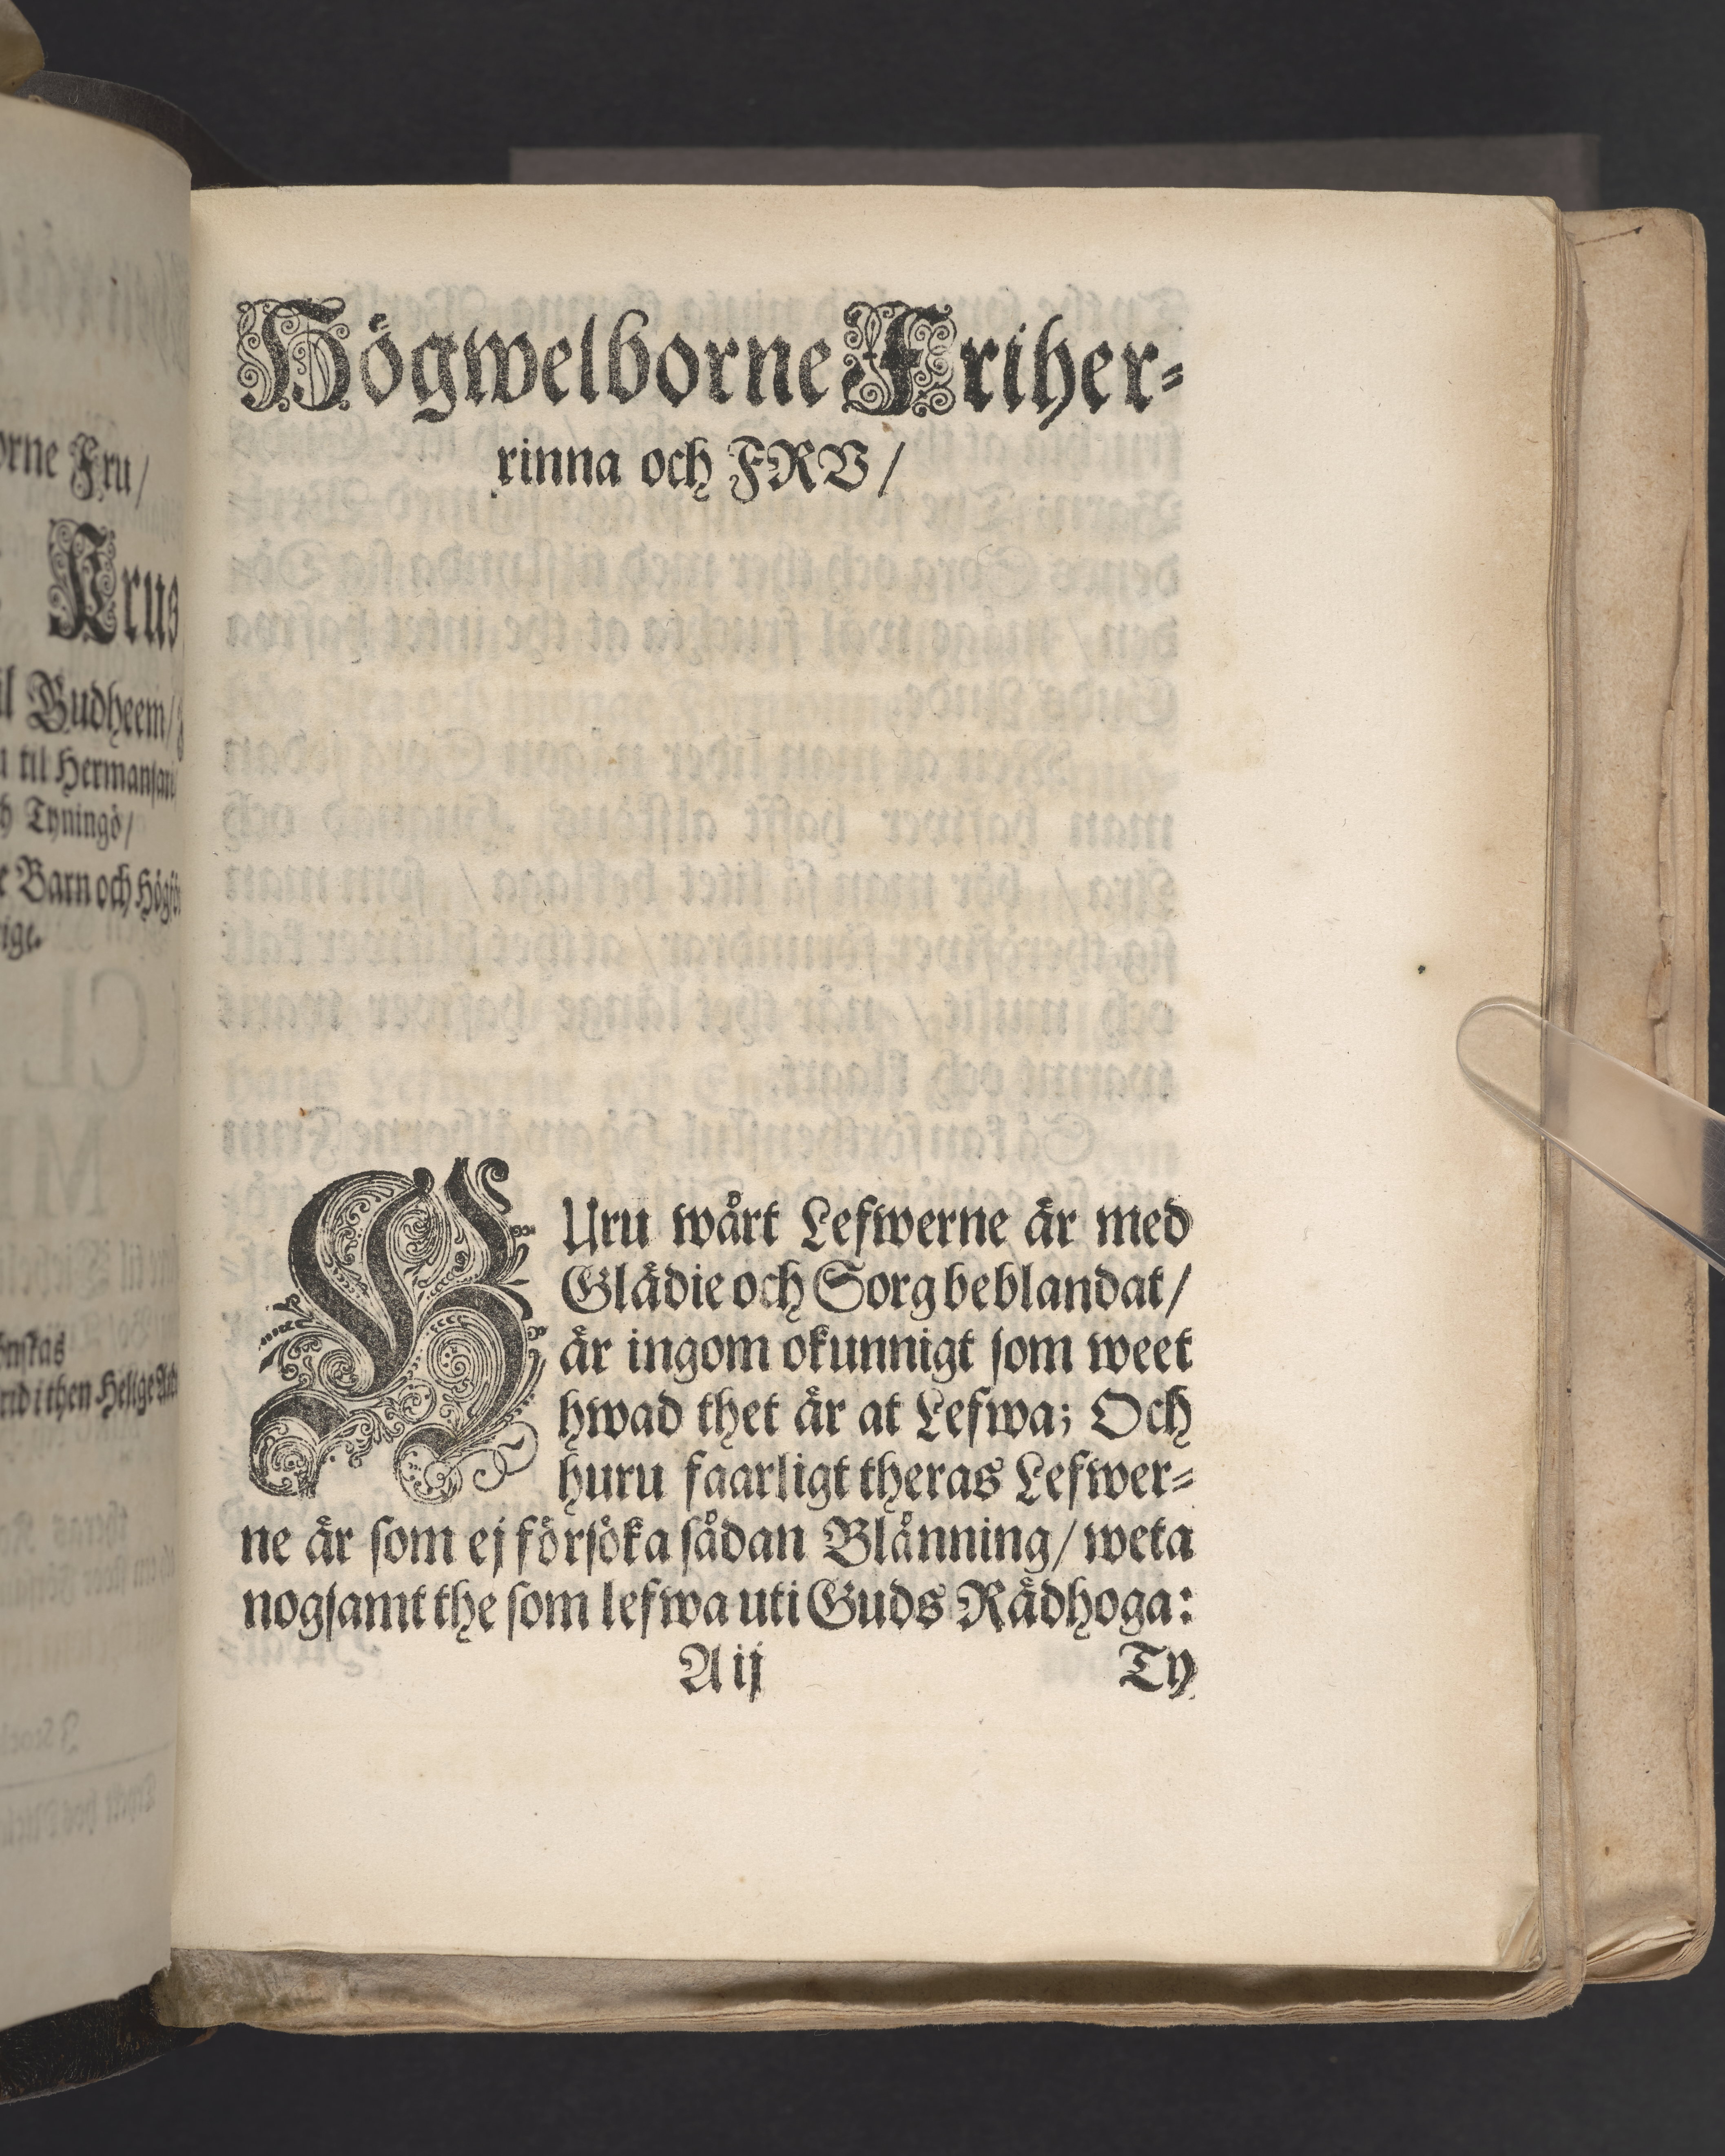 orne Fru/
Krus
il Gudheem/
til Hermansan
Tyningö/
Barn och Hög
Högwelborne Friher⸗
rinna och FRV/
HUru wårt Lefwerne är med
Glädie och Sorg beblandat/
är ingom okunnigt som weet
hwad thet är at Lefwa; Och
huru faarligt theras Lefwer⸗
ne är som ej försöka sådan Blånning/ weta
nogsamt the som lefwa uti Guds Rädhoga:
A ij
Ty